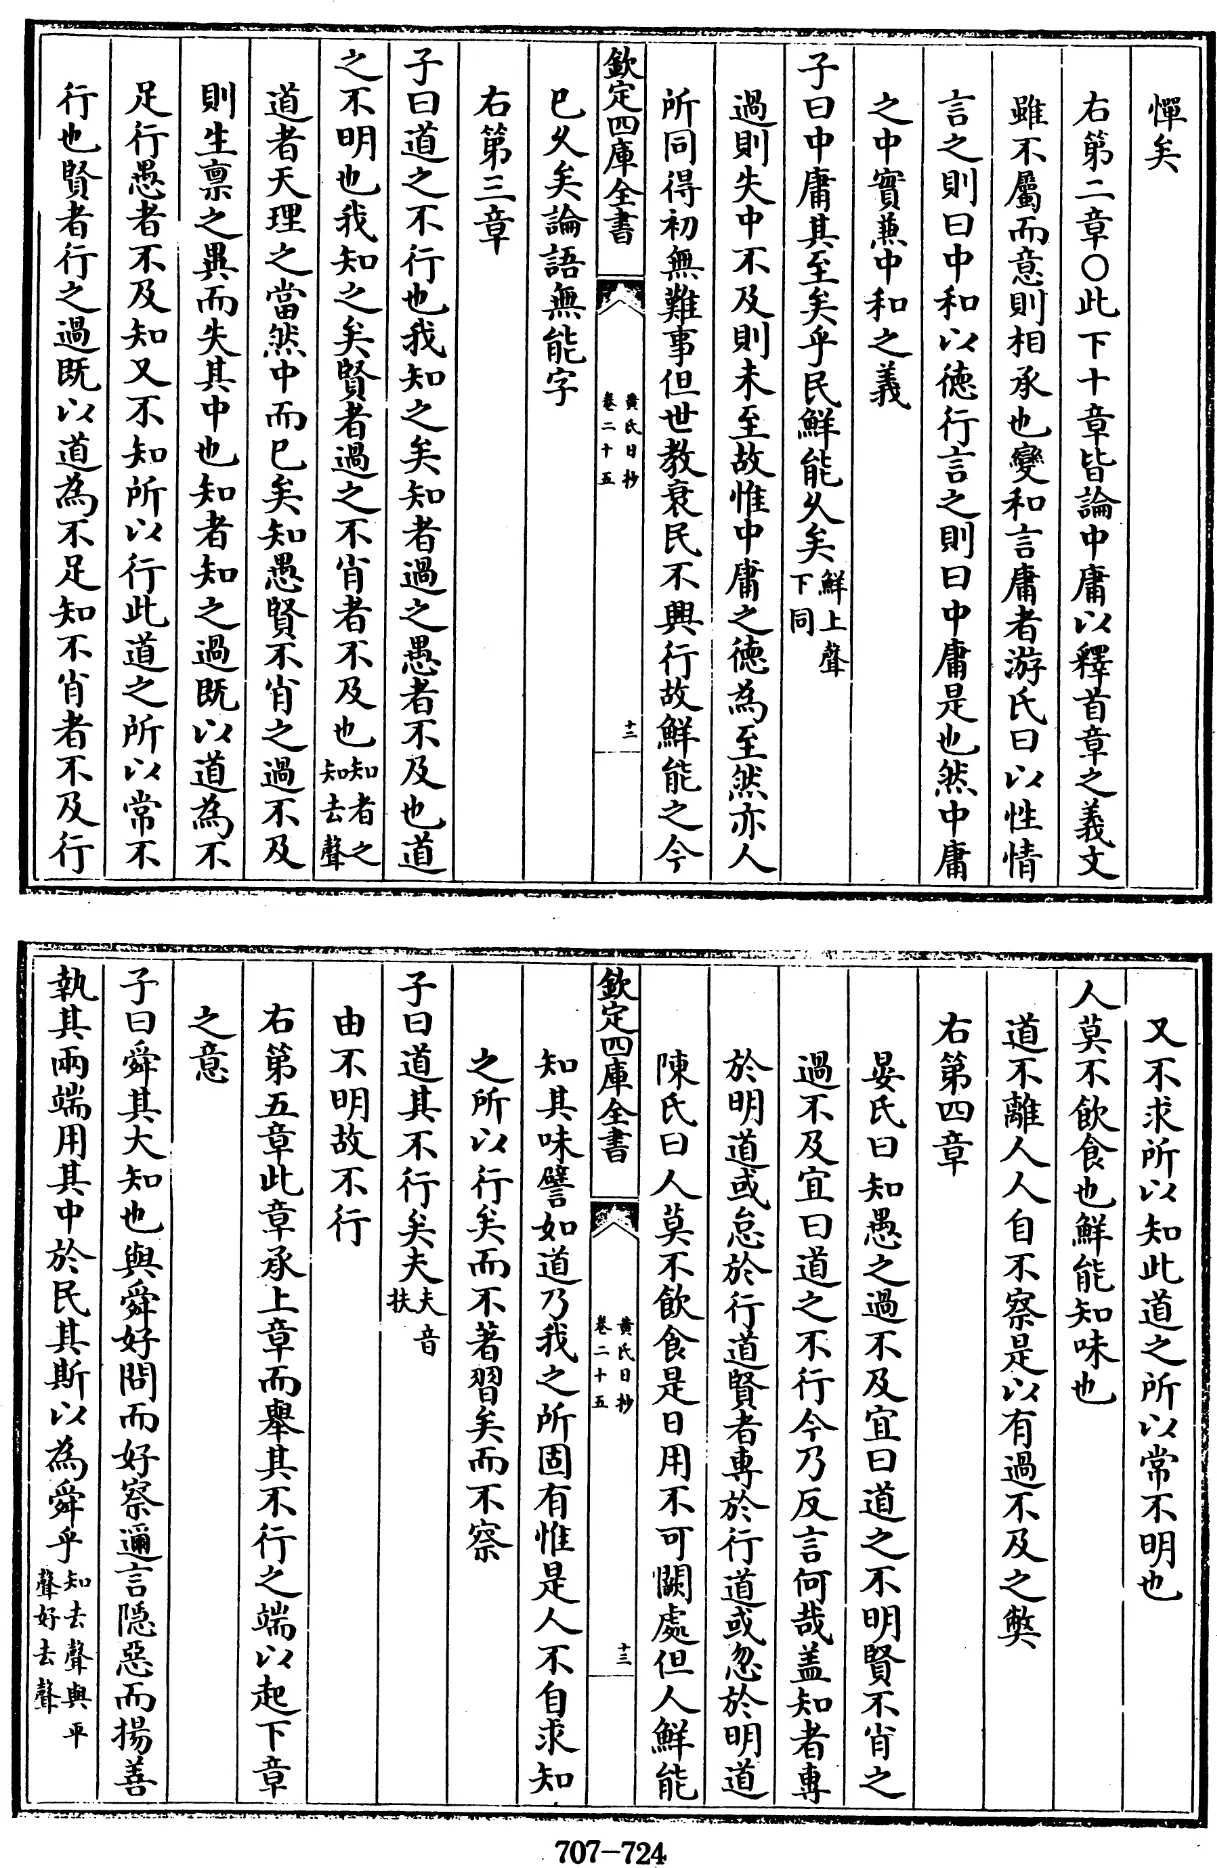 憚矣
右第二章○此下十章皆論中庸以釋首章之義文
雖不屬而意則相承也變和言庸者游氏曰以性情
言之則曰中和以德行言之則曰中庸是也然中庸
之中實兼中和之義
子曰中庸其至矣乎民鮮能久矣鮮上聲下同
過則失中不及則未至故惟中庸之德為至然亦人
所同得初無難事但世教衰民不興行故鮮能之今
欽定四庫全書
黃氏日抄
卷二十五
十二
已久矣論語無能字
右第三章
子曰道之不行也我知之矣知者過之愚者不及也道
之不明也我知之矣賢者過之不肖者不及也知者之知去聲
道者天理之當然中而已矣知愚賢不肖之過不及
則生禀之異而失其中也知者知之過既以道為不
足行愚者不及知又不知所以行此道之所以常不
行也賢者行之過既以道為不足知不肖者不及行
又不求所以知此道之所以常不明也
人莫不飲食也鮮能知味也
道不離人人自不察是以有過不及之弊
右第四章
晏氏曰知愚之過不及宜曰道之不明賢不肖之
過不及宜曰道之不行今乃反言何哉盖知者專
於明道或怠於行道賢者專於行道或忽於明道
陳氏曰人莫不飲食是日用不可闕處但人鮮能
欽定四庫全書
黃氏日抄
卷二十五
十三
知其味譬如道乃我之所固有惟是人不自求知
之所以行矣而不著習矣而不察
子曰道其不行矣夫夫音扶
由不明故不行
右第五章此章承上章而舉其不行之端以起下章
之意
子曰舜其大知也與舜好問而好察邇言隱惡而揚善
執其兩端用其中於民其斯以為舜乎知去聲與平聲好去聲
707-724